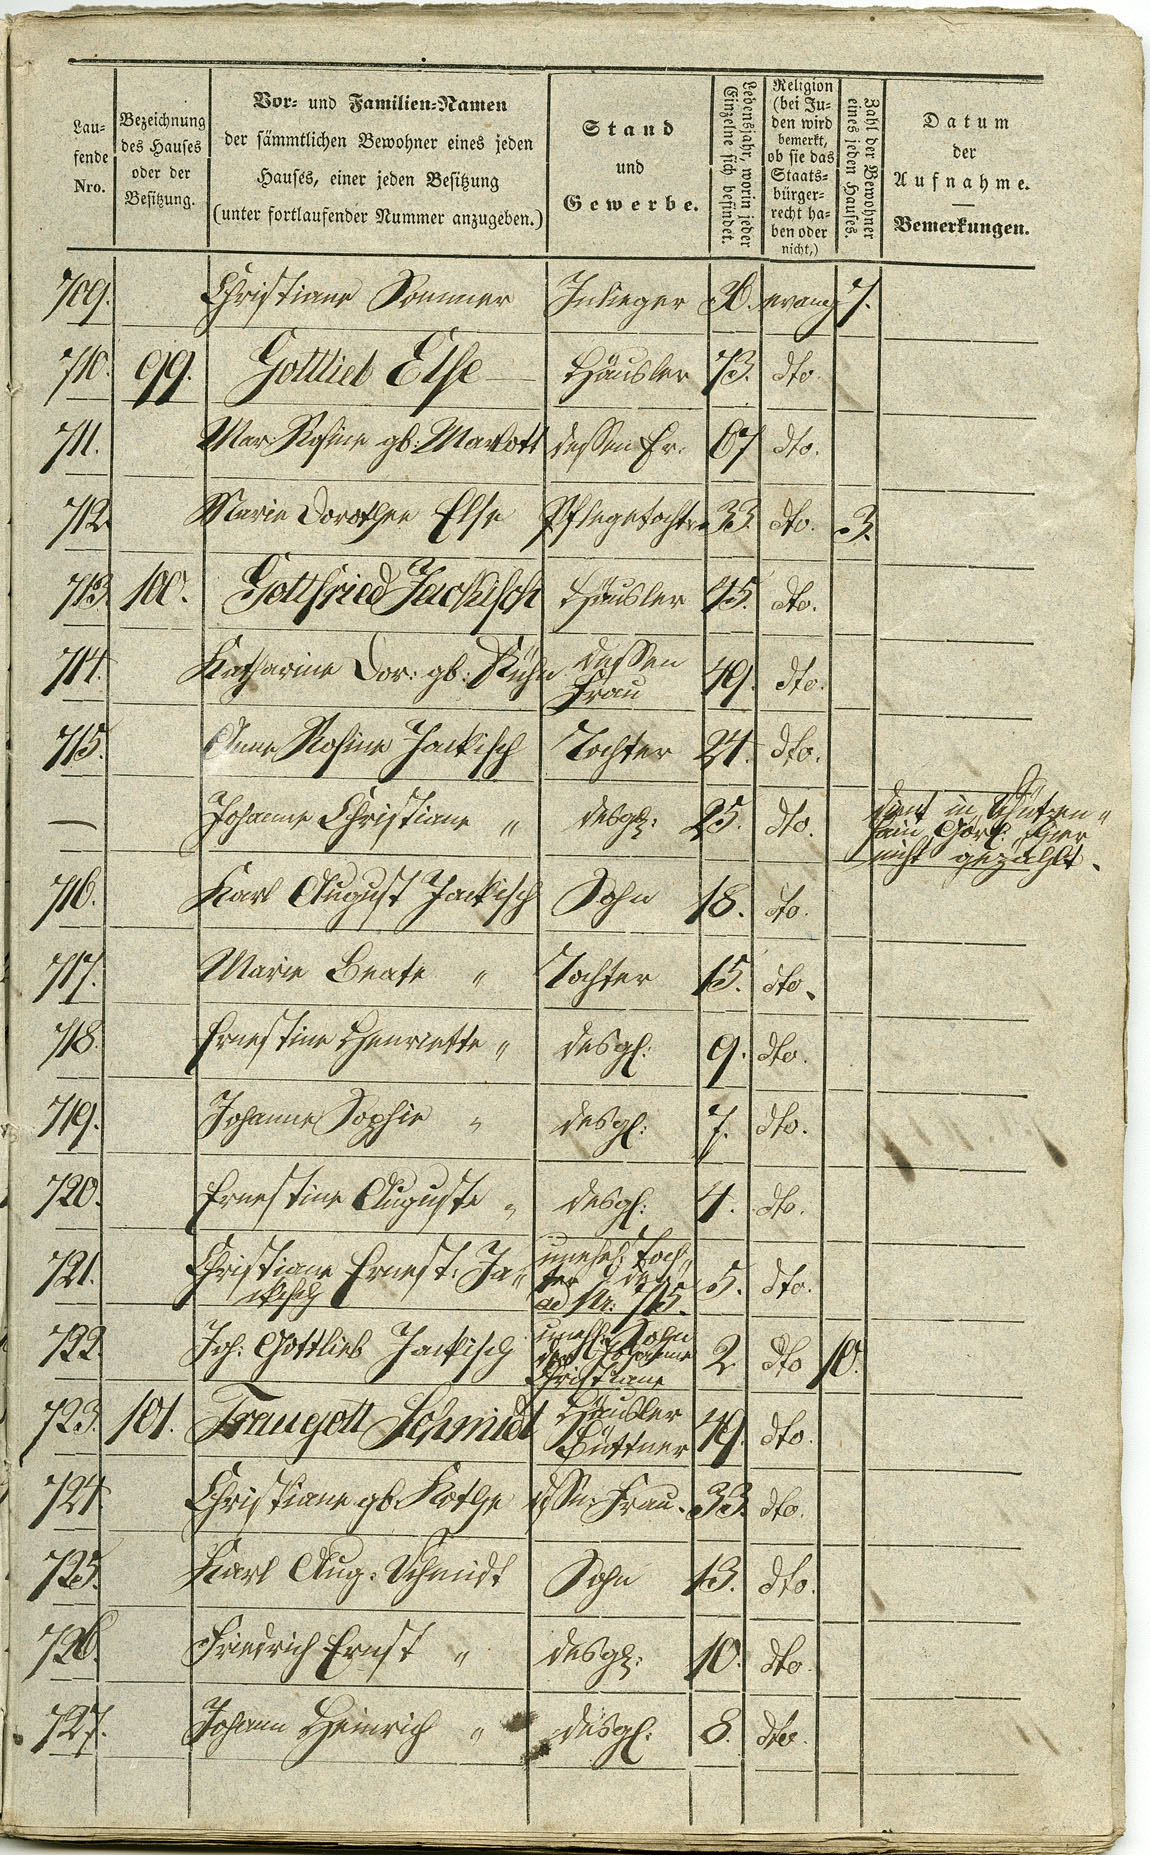 Lau-
fende
Nro.
Bezeichnung
des Hauses
oder der
Besitzung.
Vor- und Familien-Namen
der sämmtlichen Bewohner eines jeden
Hauses, einer jeden Besitzung
(unter fortlaufender Nummer anzugeben.)
Stand
und
Gewerbe.
Lebensjahr, worin jeder
Einzelne sich befindet.
Religion
(bei Ju-
den wird
bemerkt,
ob sie das
Staats-
bürger-
recht ha-
ben oder
nicht,)
Zahl der Bewohner
eines jeden Hauses.
Datum
der
Aufnahme.
Bemerkungen.
709. Christiane Sommer Inlieger evang 7.
710. 99. Gottlieb Else Häusler 73. dto.
711. Mar. Rosine gb: Markott dessen Fr. 67 dto.
712 Marie Dorothee Else Pflegetochter 33. dto. 3.
713 100. Gottfried Jackisch Häusler 45. dto.
714. Katharine Dor: gb: Kühn dessen
Frau 49. dto.
715. Anne Rosine Jackisch Tochter 24. dto.
— Johanne Christiane " desgl: 25. dto. dient in Schützen-
hain Görl: hier
nicht gezählt.
716. Karl August Jackisch Sohn 18. dto.
717. Marie Beate " Tochter 15. dto.
718. Ernestine Henriette " desgl: 9. dto.
719. Johanne Sophie " desgl: 7. dto.
720. Ernestine Auguste " desgl: 4. dto.
721. Christiane Ernest: Ja-
ckisch unehel: Toch-
ter der
ad Nr: 715. 5. dto.
722. Joh: Gottlieb Jackisch unehl. Sohn
der Johanne
Christiane 2. dto 10.
723. 101. Traugott Schmidt Häusler
Büttner 49. dto.
724. Christiane gb. Kothe dssn. Frau. 33. dto.
725. Karl Aug: Schmidt Sohn 13. dto.
726. Friedrich Ernst " desgl: 10. dto.
727. Johann Heinrich " desgl: 8. dto.